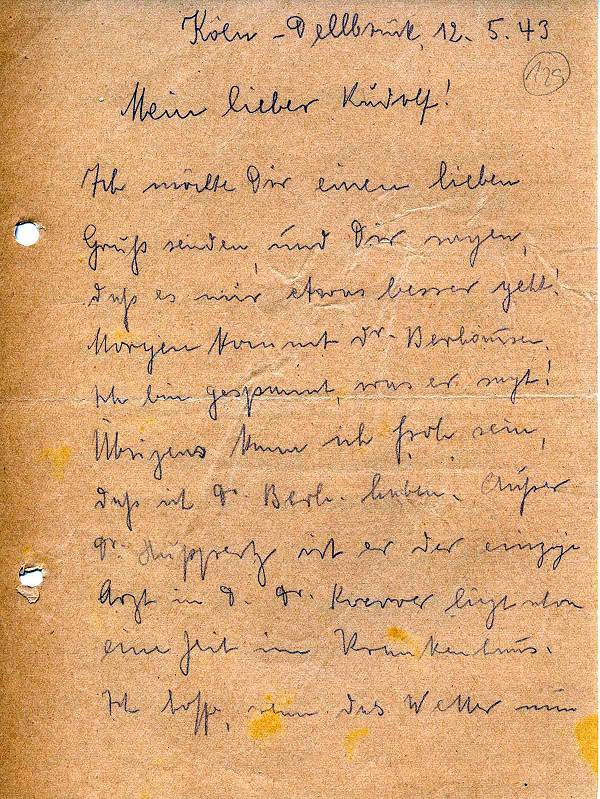 Köln-Dellbrück, 12. 5. 43
129
Mein lieber Rudolf!
Ich möchte Dir einen lieben
Gruß senden, und Dir sagen,
daß es mir etwas besser geht!
Morgen kommt Dr. Berhausen.
Ich bin gespannt, was er sagt!
Übrigens kann ich froh sein,
daß ich Dr. Berh. habe. Außer
Dr. Huppertz ist er der einzige
Arzt in D. Dr. liegt schon
eine Zeit im Krankenhaus.
Ich hoffe, wenn das Wetter nun